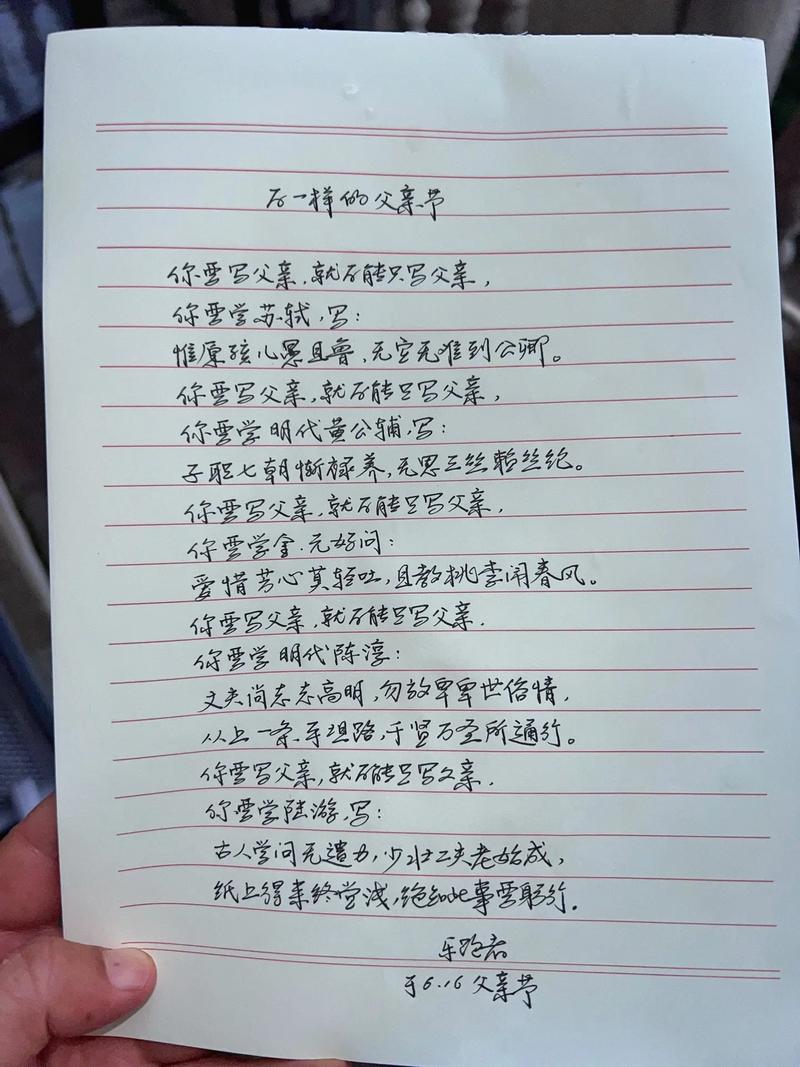 不一样的父亲节
你要写父亲,就不能只写父亲,
你要学苏轼,写:
惟愿孩儿愚且鲁,无灾无难到公卿。
你要写父亲,就不能只写父亲,
你要学明代黄公辅,写:
子职七朝惭禄养,无思三丝赖丝纶。
你要写父亲,就不能只写父亲,
你要学金.元好问:
爱惜芳心莫轻吐,且教桃李闹春风。
你要写父亲,就不能只写父亲.
你要学明代陈淳:
丈夫尚志志高明,勿效卑卑世俗情,
从上一条平坦路,千贤万圣所通行。
你要写父亲,就不能只写父亲.
你要学陆游,写:
古人学问无遗力,少壮工夫老始成,
纸上得来终觉浅,绝知此事要躬行.
乐跑者
于6.16父亲节